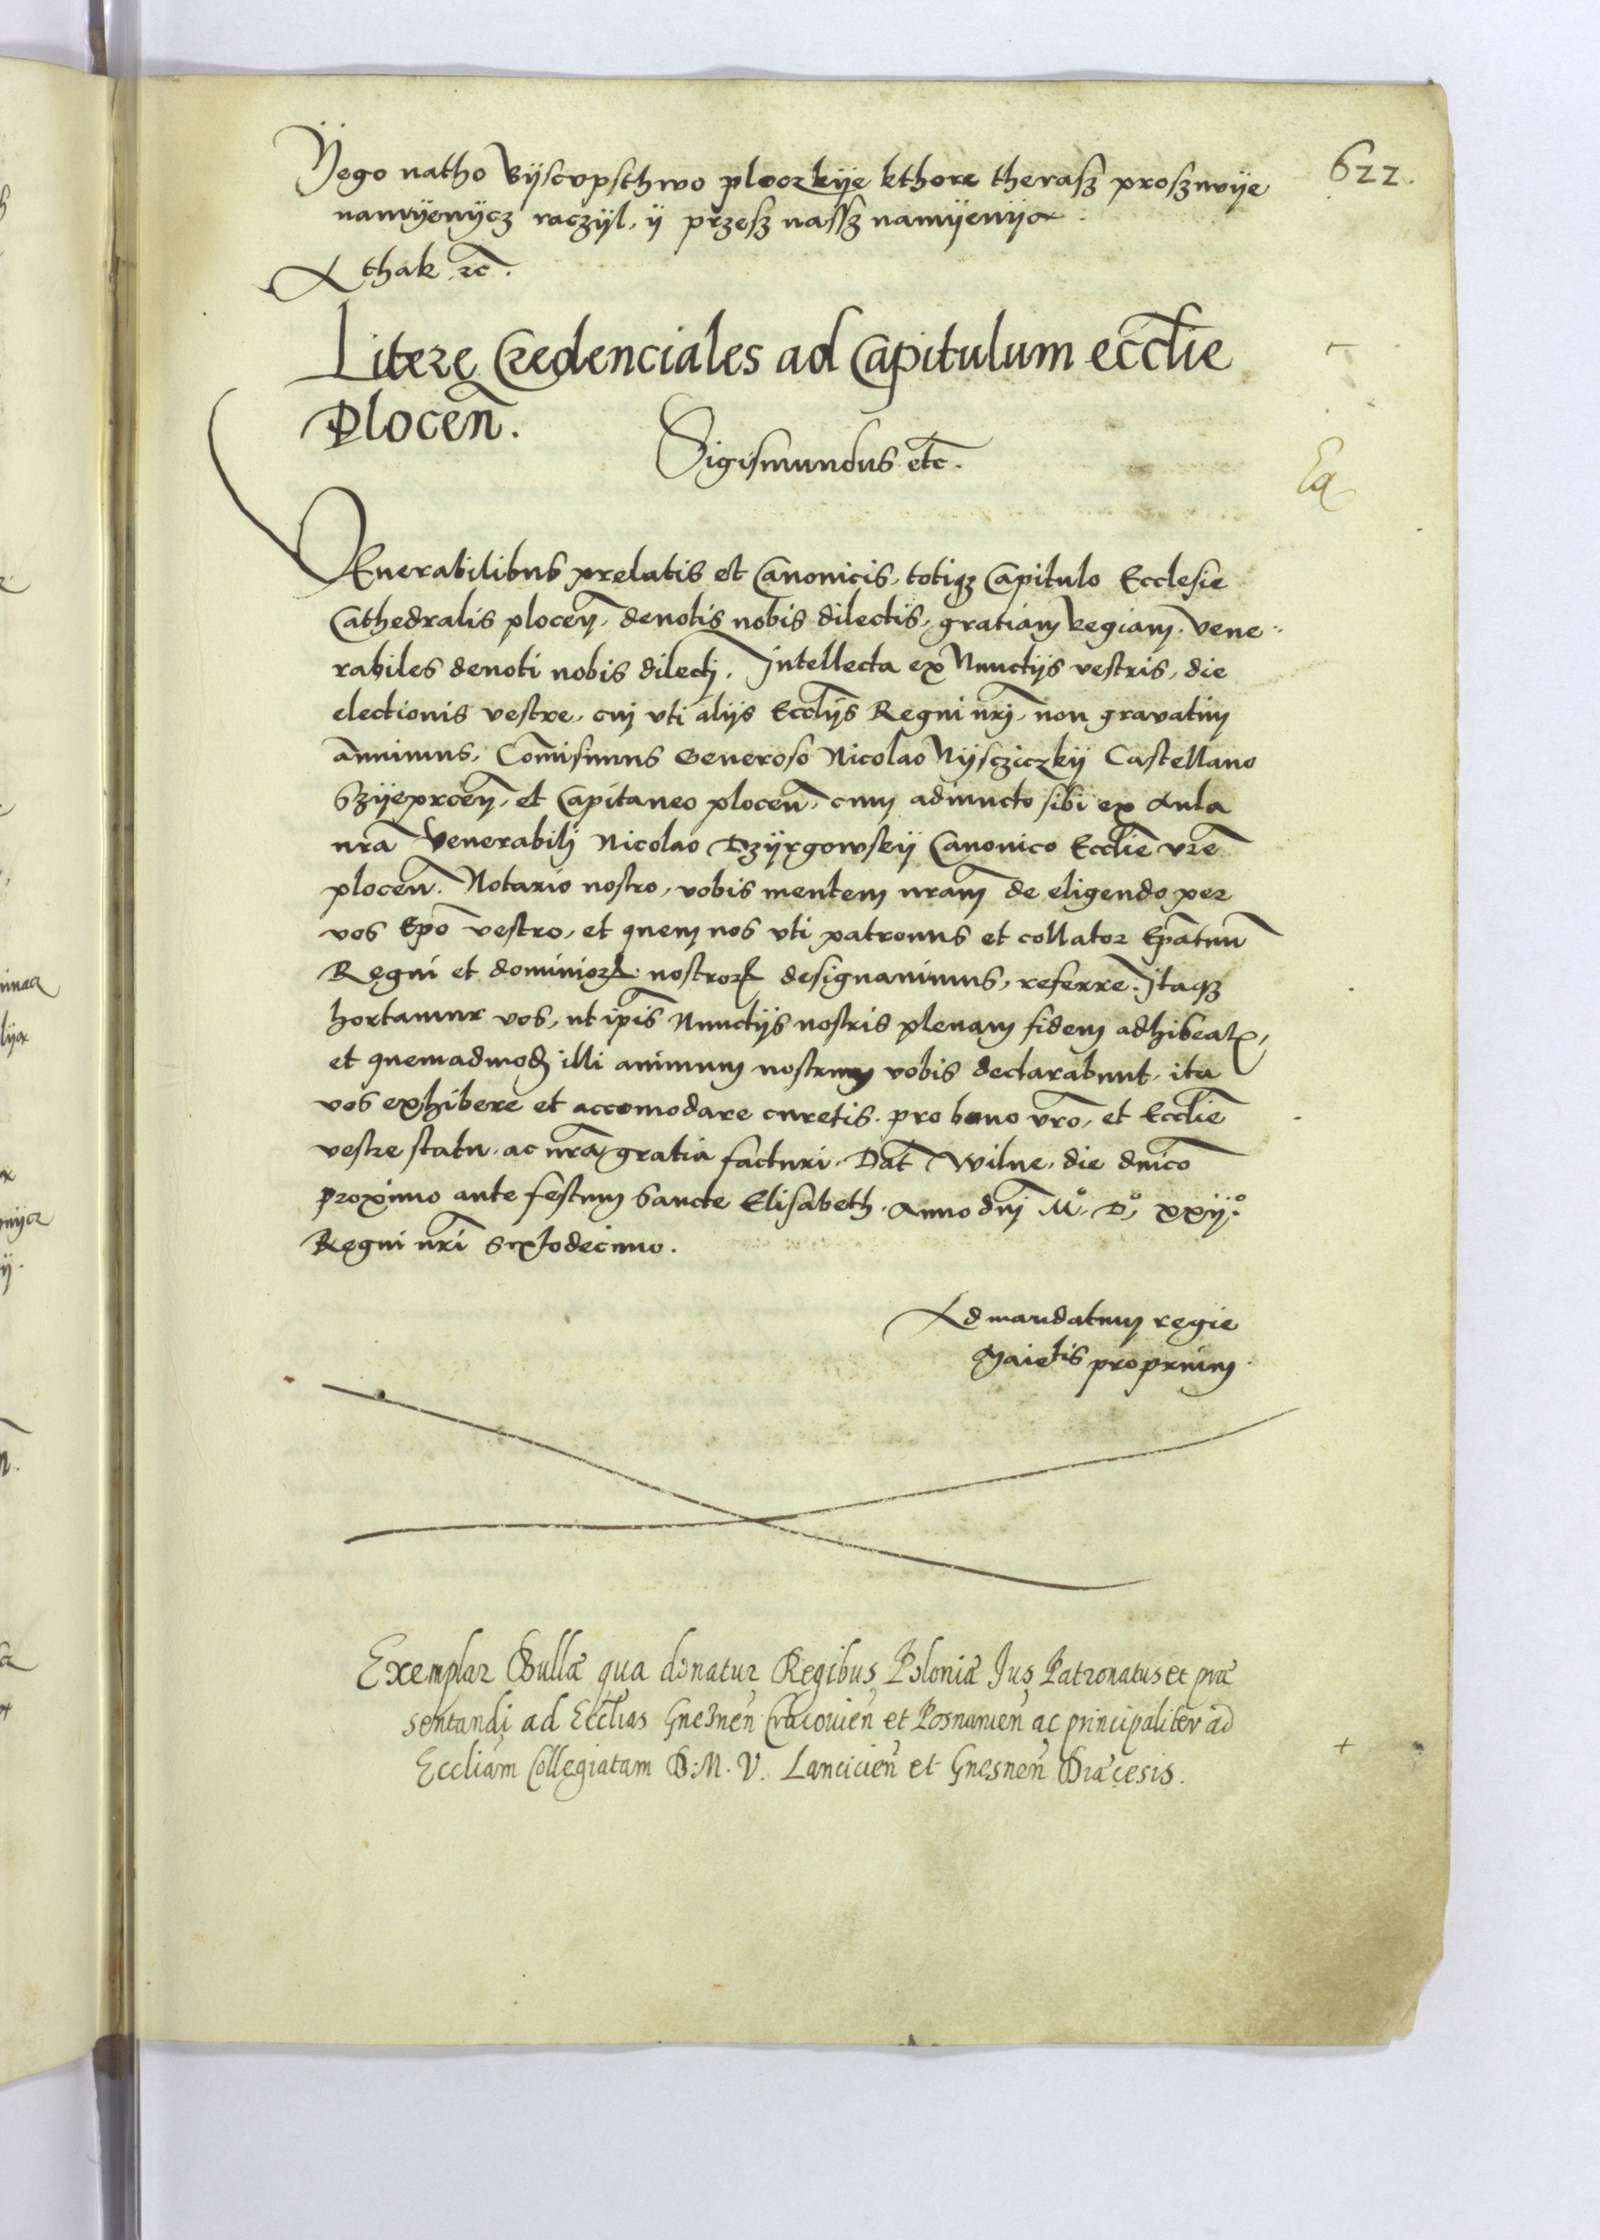 622.
Ÿego natho Bÿscvpsthwo ploczkÿe kthore therasz prosznuÿe
namÿenÿcz raczÿl, ÿ przesz nassz namÿenÿa
A thak rc̄.
Litere Credenciales ad Capitulum eccl̄ie
Plocen̄.
Sigismundus etc̄.
Venerabilibus prelatis et Canonicis, totiqȝ Capitulo Ecclesie
Cathedralis plocen̄, deuotis nobis dilectis, gratiam Regiam. Vene-
rabiles deuoti nobis dilecti. Intellecta ex Nunctijs vestris, die
electionis vestre, cui vti alijs Eccl̄ijs Regni nr̄i, non gravatim
annuimus, Com̄isimus Generoso Nicolao Nÿscziczkÿ Castellano
Szÿeprcen̄, et Capitaneo plocen̄, cum adiuncto sibi ex Aula
nr̄a Venerabili Nicolao Dzÿrgowskÿ Canonico Eccl̄ie vr̄e
plocen̄. Notario nostro, vobis mentem nr̄am de eligendo per
vos Ep̄o vestro, et quem nos vti patronus et collator Ep̄atuum
Regni et dominioꝝ nostroꝝ designauimus, referre. Itaqȝ
hortamur vos, ut ip̄is Nunctijs nostris plenam fidem adhibeatꝭ,
et quemadmodȝ illi animum nostrum vobis declarabunt, ita
vos exhibere et accomodare curetis. pro bono vr̄o, et Eccl̄ie
vestre statu, ac nr̄a gratia facturi. Dat̄ Wilne, die dn̄ico
proximo ante festum Sancte Elisabeth. Anno dn̄i M°. D°. xxij°.
Regni nr̄i Sextodecimo.
Ad mandatum regie
Maietis proprium.
Exemplar Bullæ qua donatur Regibus Poloniæ Jus Patronatus et præ
sentandi ad Eccl̄ias Gneznen̄ Cracouien̄ et Posnanien̄ ac principaliter ad
Eccliam Collegiatam B. M. V. Lancicien̄ et Gnesnen̄ Diæcesis.